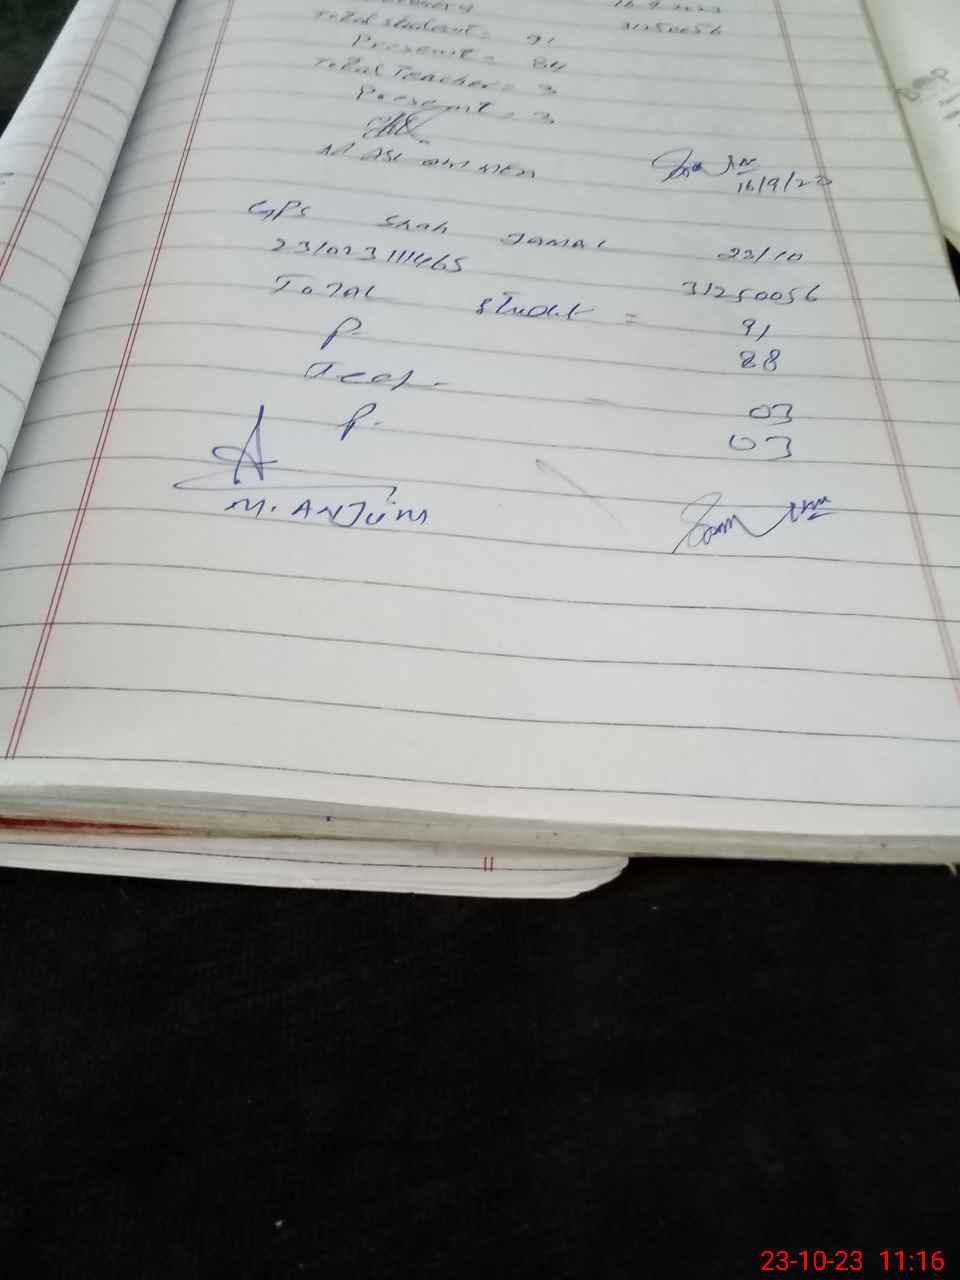 16-9-2023
Total student = 91 31250056
Present = 84
Total Teacher = 3
Present = 3
16/9/23
GPS Shah Jamal 23/10
31250056
Total Studt = 91
P. 88
Teach. 03
P. 03
M. ANJUM
23-10-23 11:16